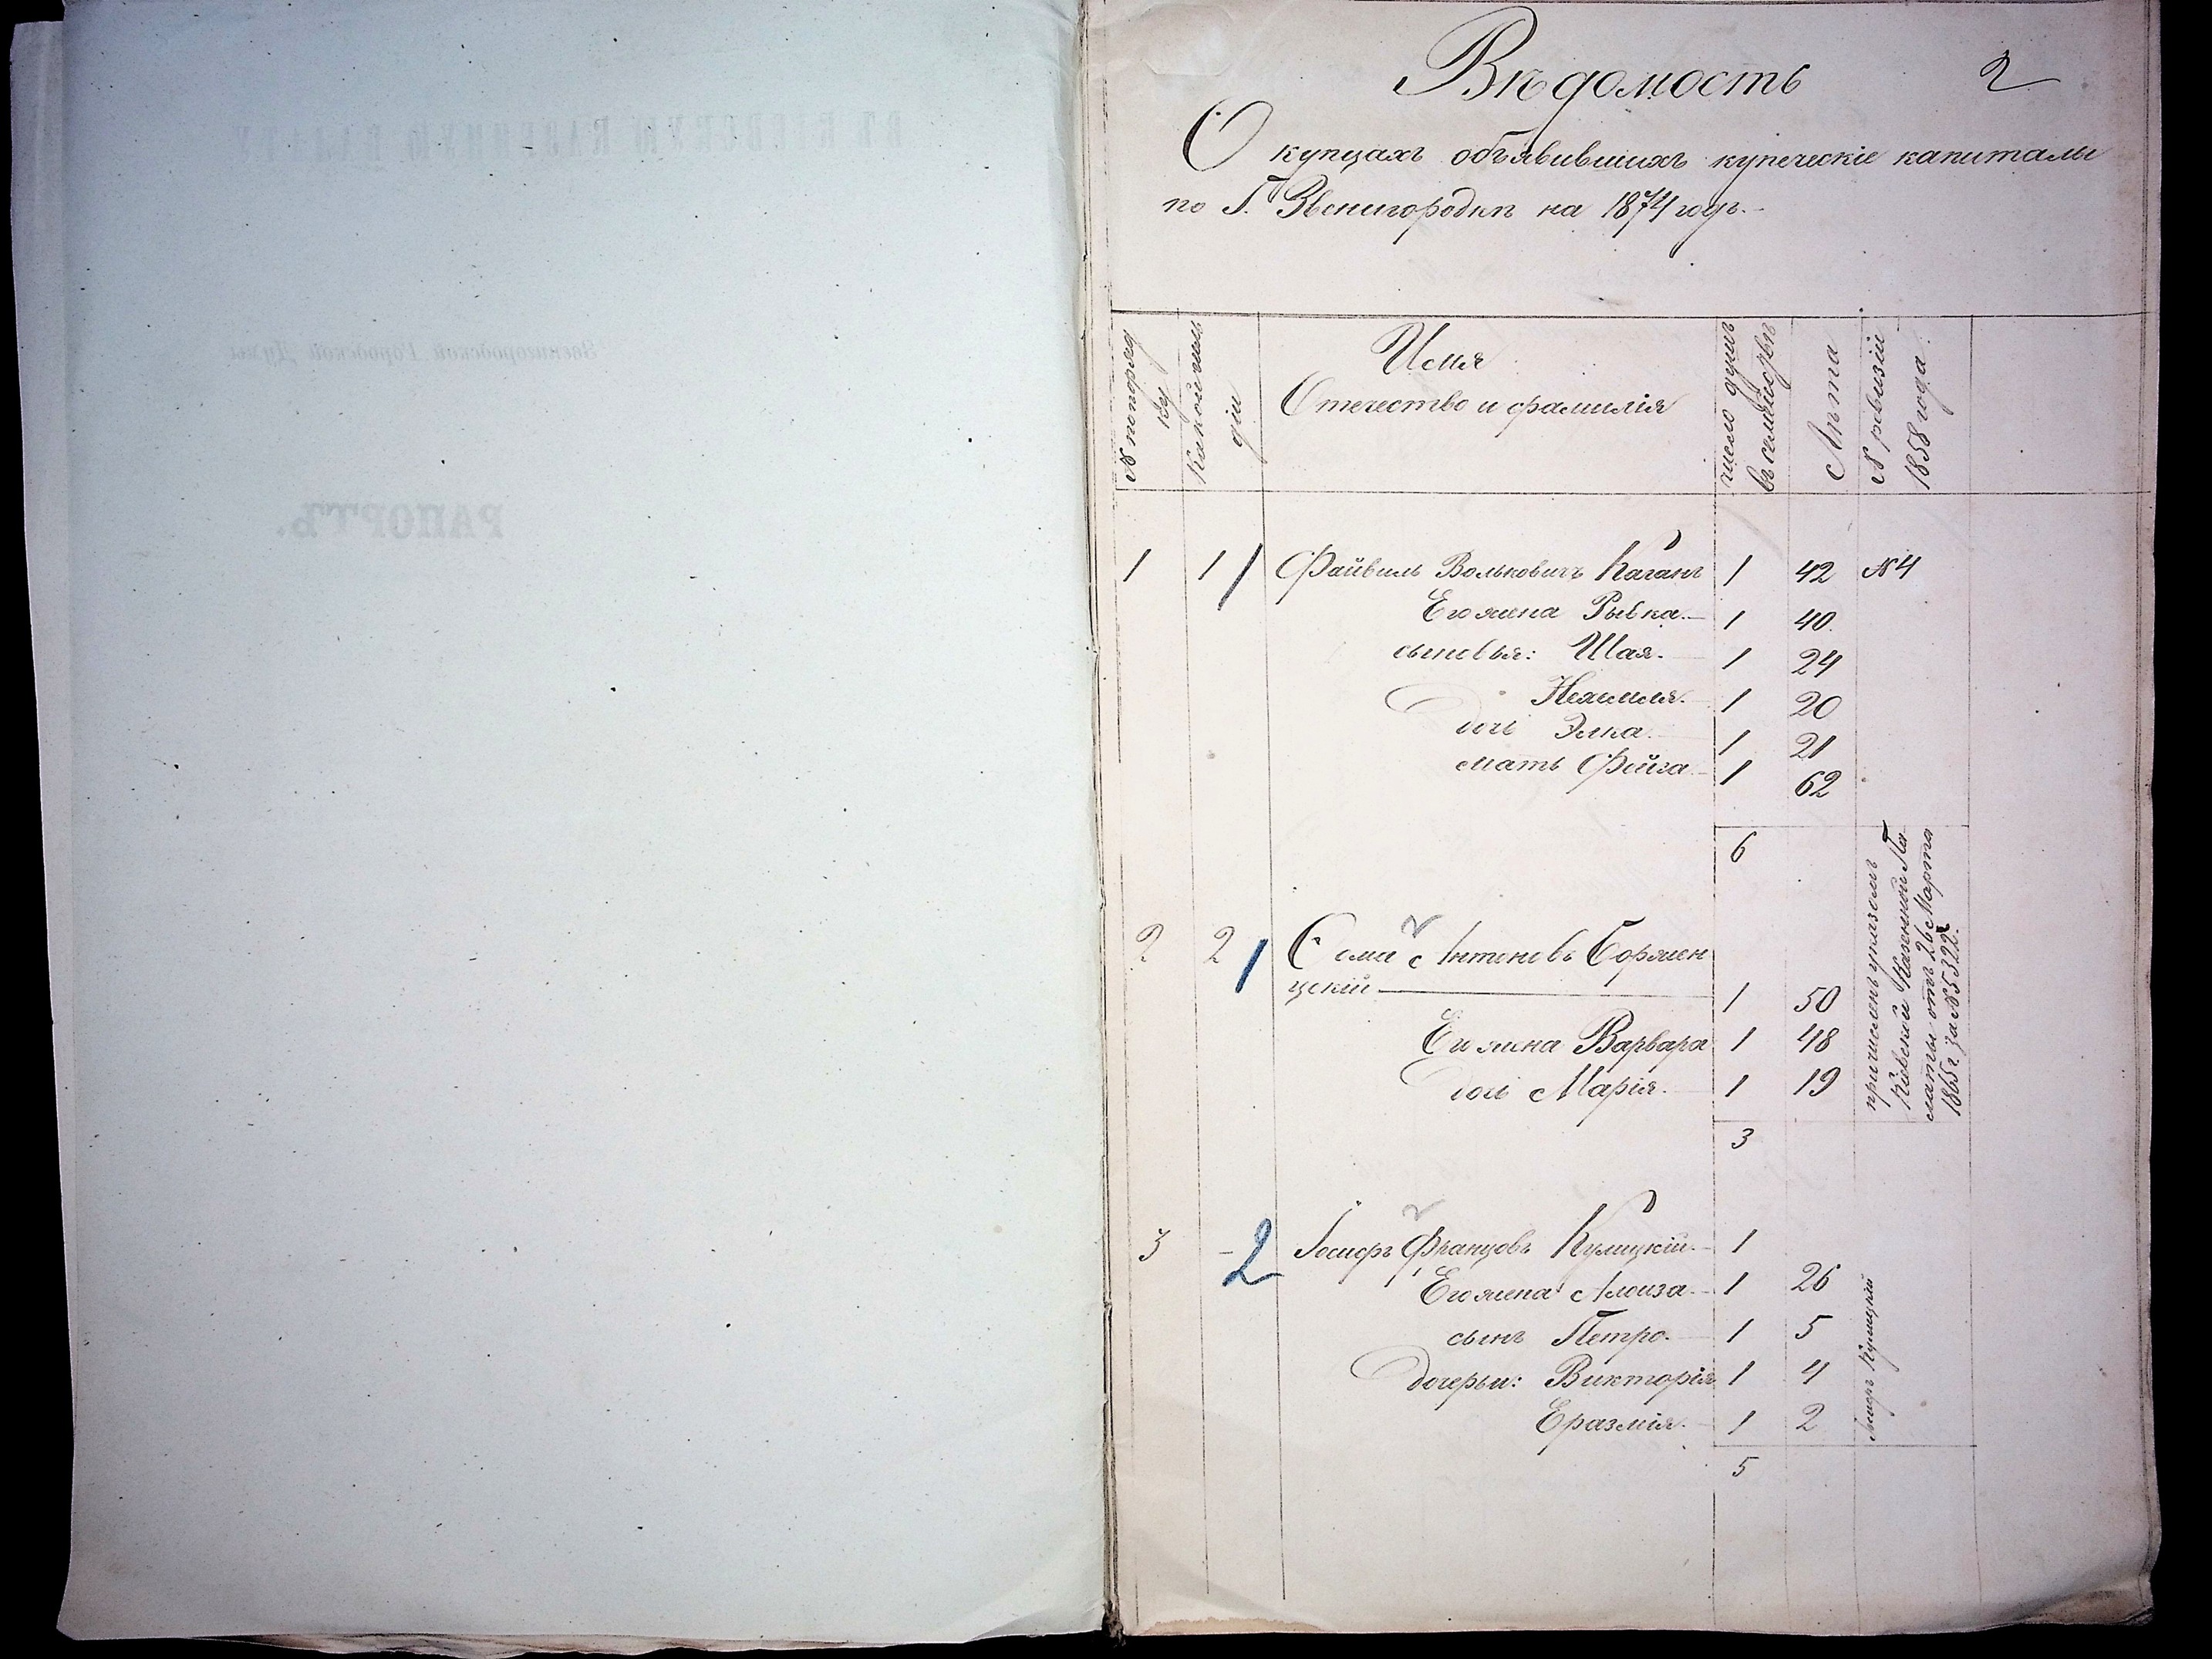 ВЪ КІЕВСКУЮ КАЗЕННУЮ ПАЛАТУ
Звенигородской Городской Думы
РАПОРТЪ.
Вѣдомость 2
О купцахъ объявившихъ купеческіе капиталы
по Г. Звенигородкѣ на 1874 годъ.-
№ попоряд
ку
Какой гиль
діи
Имя
Отечество и фамилія
число душъ
въ семействѣ
Лѣта
№ ревизіи
1858 года
1 1 / Файвиль Вольковичъ Каганъ 1 42 №4
Его жена Рывка.- 1 40.
сыновья: Шая. 1 24
Нехемля. 1 20
дочь Элка. 1 21
мать Фейга. 1 62
6
2 2 / Антоновъ Боржен
цкій 1 50
Его жена Варвара 1 48
дочь Марія. 1 19
3
причисленъ указомъ
Кіевской Казенной Па
латы отъ 26 Марта
1865 г. за №5322.
3 - 2 Іосифъ Францовъ Кулицкій.- 1
Его жена Алоиза.- 1 26
сынъ Петро. 1 5
дочерьи: Викторія 1 4
Еразмія. 1 2
Іосифъ Кулицкій
5